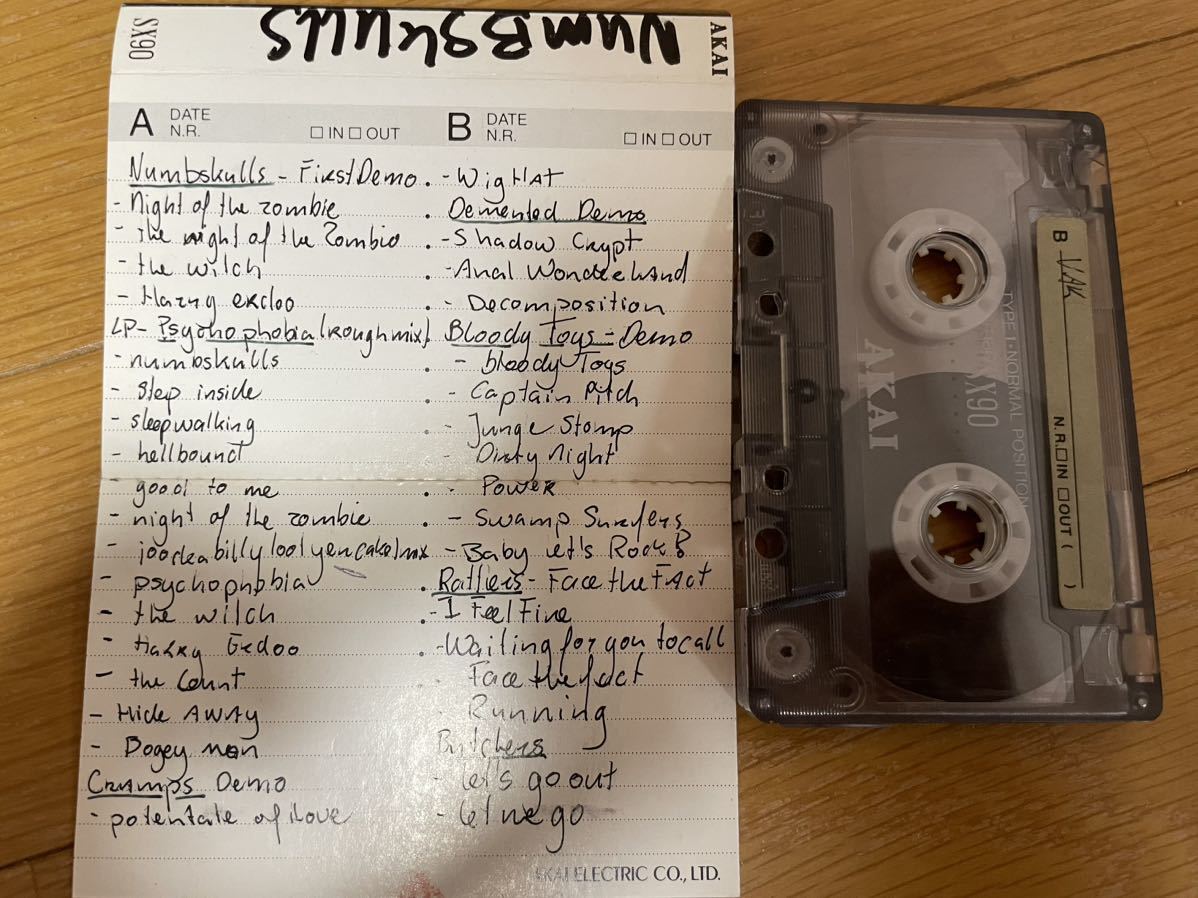 NumBskulls
AKAI
SX90
A DATE N.R. IN OUT
Numbskulls - First Demo
- Night of the zombie
- The night of the Zombie
- the witch
- Harry
LP- Psychophobia (Roughmix)
- numbskulls
- Step inside
- sleepwalking
- hellbound
- good to me
- night of the zombie
- psychophobia
- the witch
- Harry
- the Count
- Hide AWAy
- Bogey man
Cramps Demo
- potentate of love
B DATE N.R. IN OUT
- Wig HAT
Demented Demo
- Shadow Crypt
- Anal Wonderland
- Decomposition
Bloody Toys - Demo
- bloody Toys
- Captain Pitch
- Junge Stomp
- Dirty Night
- Power
- Swamp Surfers
- Baby Let's Rock
Ratliers - Face the FAct
- I Feel Fine
- Waiting for you to call
- Face the fact
- Running
Butchers
- let's go out
- let me go
AKAI ELECTRIC CO., LTD.
B
N.R. IN OUT ( )
AKAI
SX90
TYPE I · NORMAL POSITION